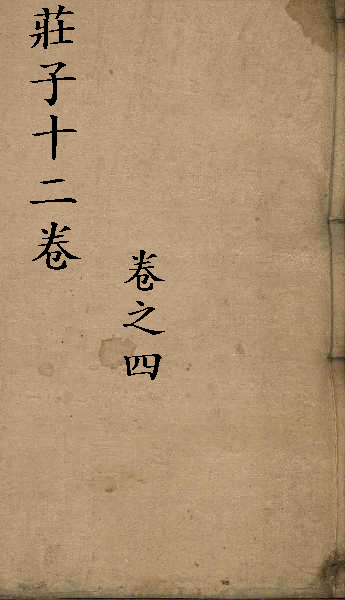 莊子十二卷
卷之四